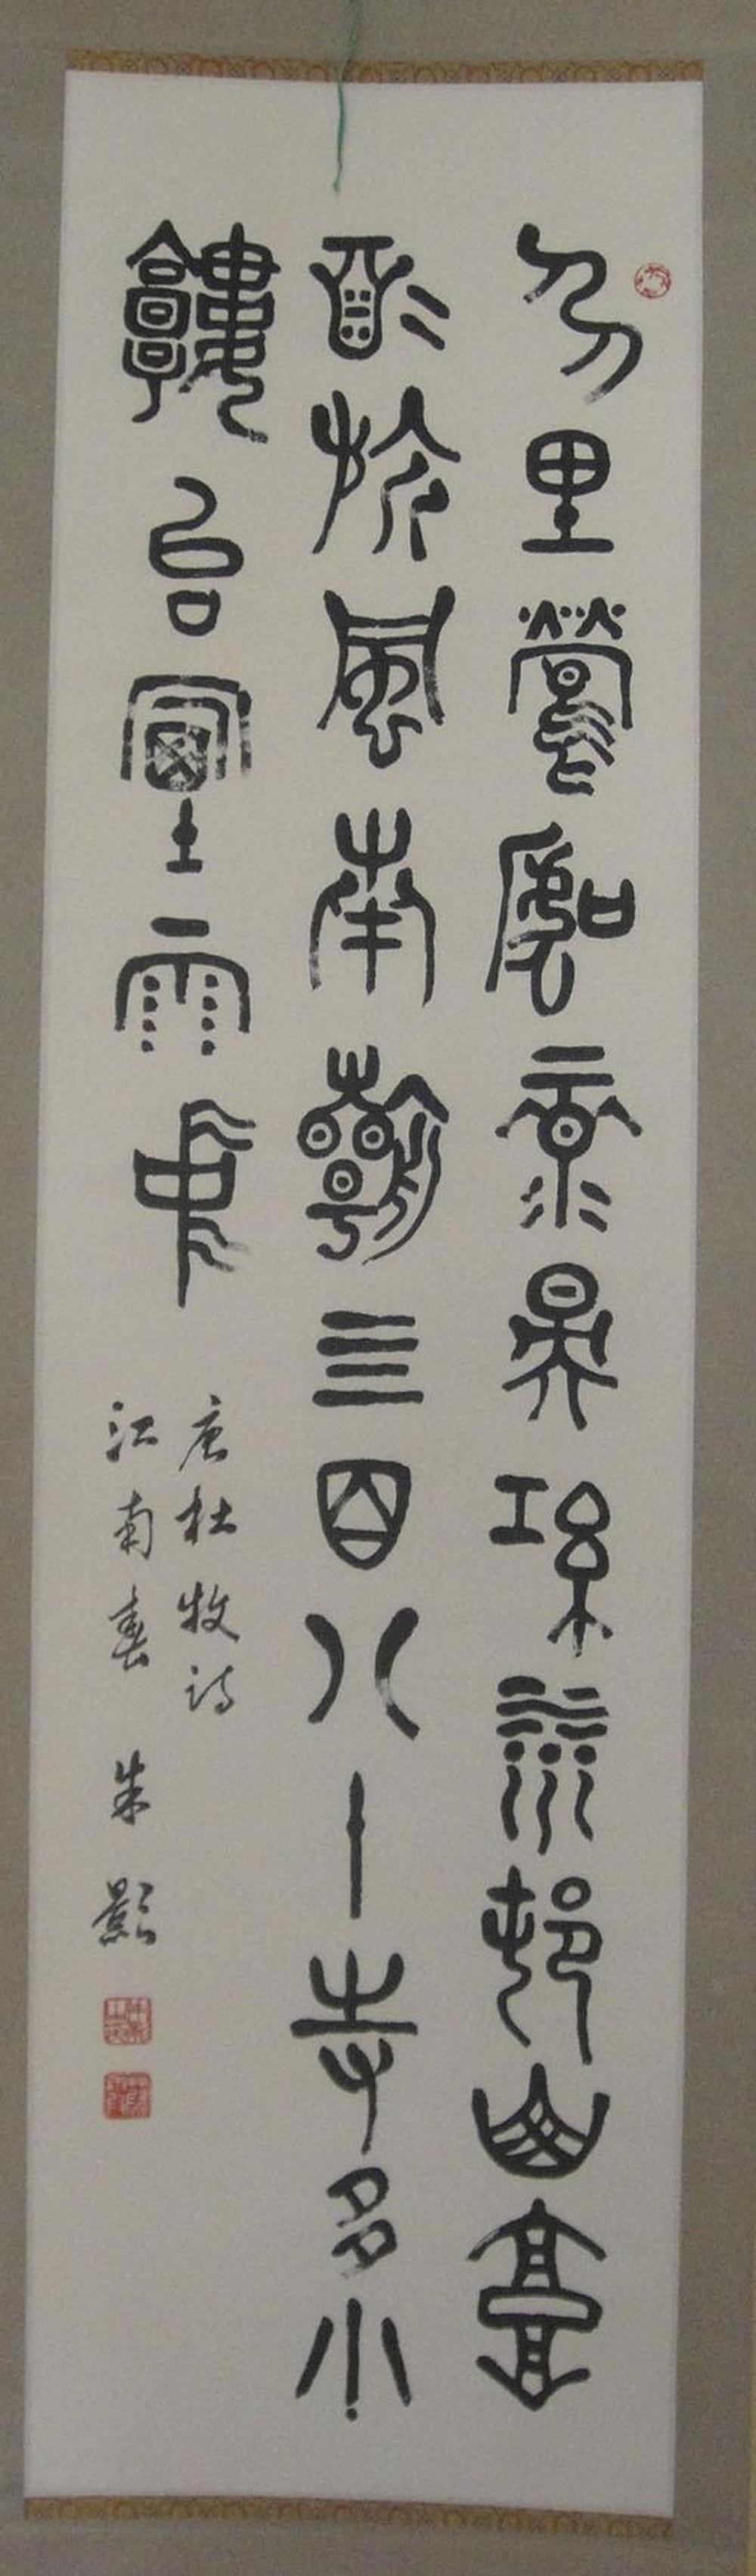 千里鶯啼綠映紅水邨山郭
酒旗風南朝四百八十寺多少
樓台煙雨中
唐杜牧詩
江南春 朱影